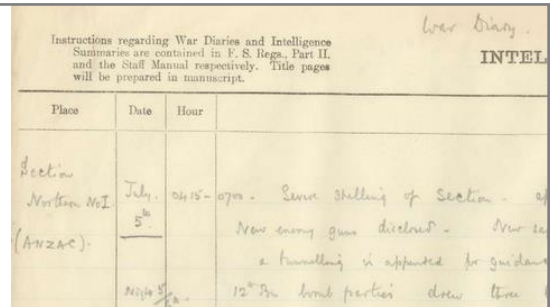 War Diary.
Instructions regarding War Diaries and Intelligence
Summaries are contained in F. S. Regs., Part II.
and the Staff Manual respectively. Title pages
will be prepared in manuscript.
INTEL
Place Date Hour
Section
Northern No I. July. 0415 - 0700 - Severe shelling of Section -
5th
New enemy guns disclosed - New
(ANZAC).
a tunnelling is appended for guidan
Night 5/6th. 12th Bn bomb parties drew three